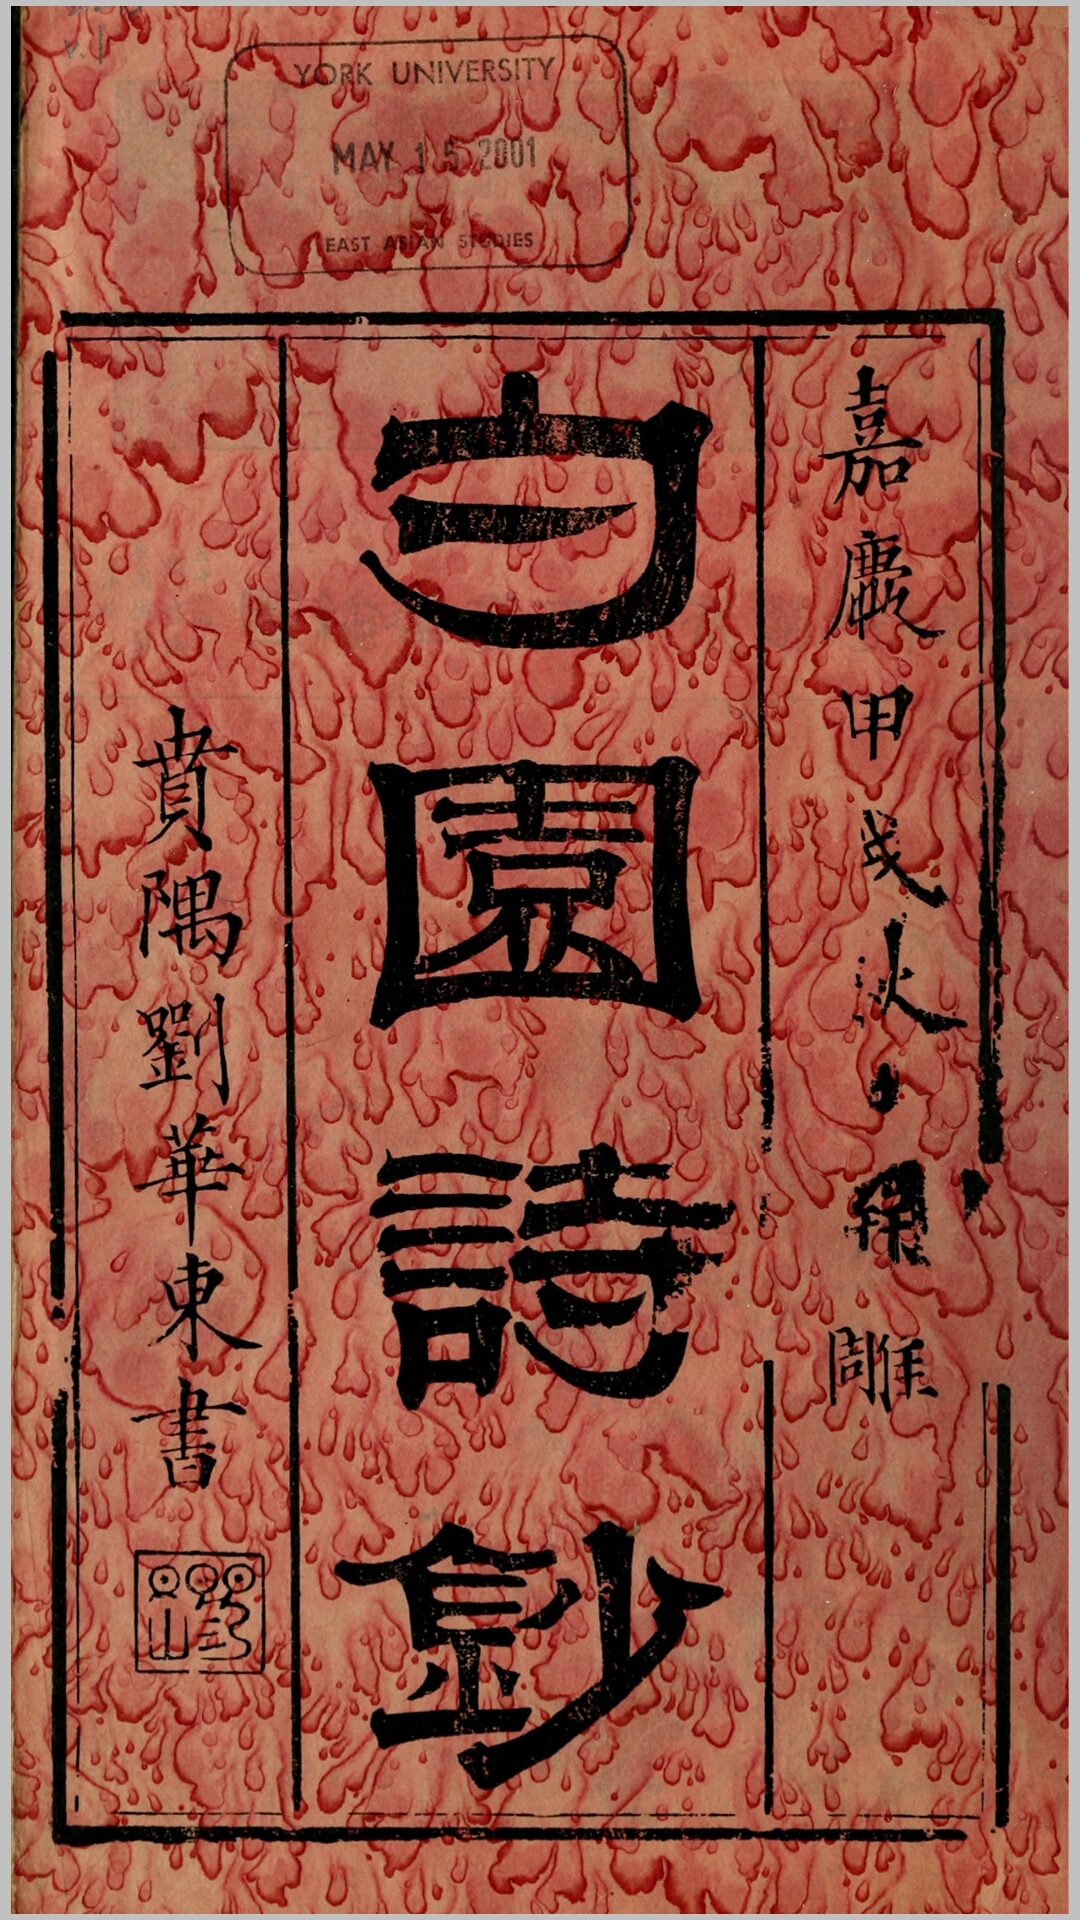 v.1
YORK UNIVERSITY
MAY 15 2001
EAST ASIAN STUDIES
嘉慶甲戌秋雕
勺園詩鈔
賁隅劉華東書